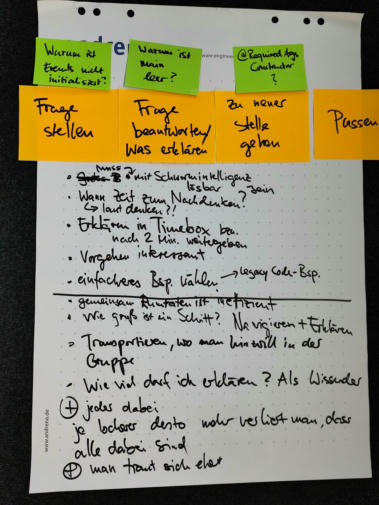 andrena
ware engineer
Warum ist
Events nicht
initialisiert?
Warum ist
main
leer?
@Required Args
Constructor
?
Frage
stellen
Frage
beantworten/
Was erklären
Zu neuer
Stelle
gehen
Passen
muss
• mit Schwarmintelligenz
lösbar sein
• Wann Zeit zum Nachdenken?
↳ laut denken?!
• Erklären in Timebox bzw.
nach 2 Min. weitergeben
• Vorgehen interessant
• einfacheres Bsp. wählen → Legacy Code-Bsp.
• gemeinsam ist ineffizient
• Wie groß ist ein Schritt? Navigieren + Erklären
• Transportieren, wo man hinwill in der
Gruppe
- Wie viel darf ich erklären? Als Wissender
⊕ jeder dabei
je lockerer desto mehr verliert man, dass
alle dabei sind
⊕ man traut sich eher
www.andrena.de